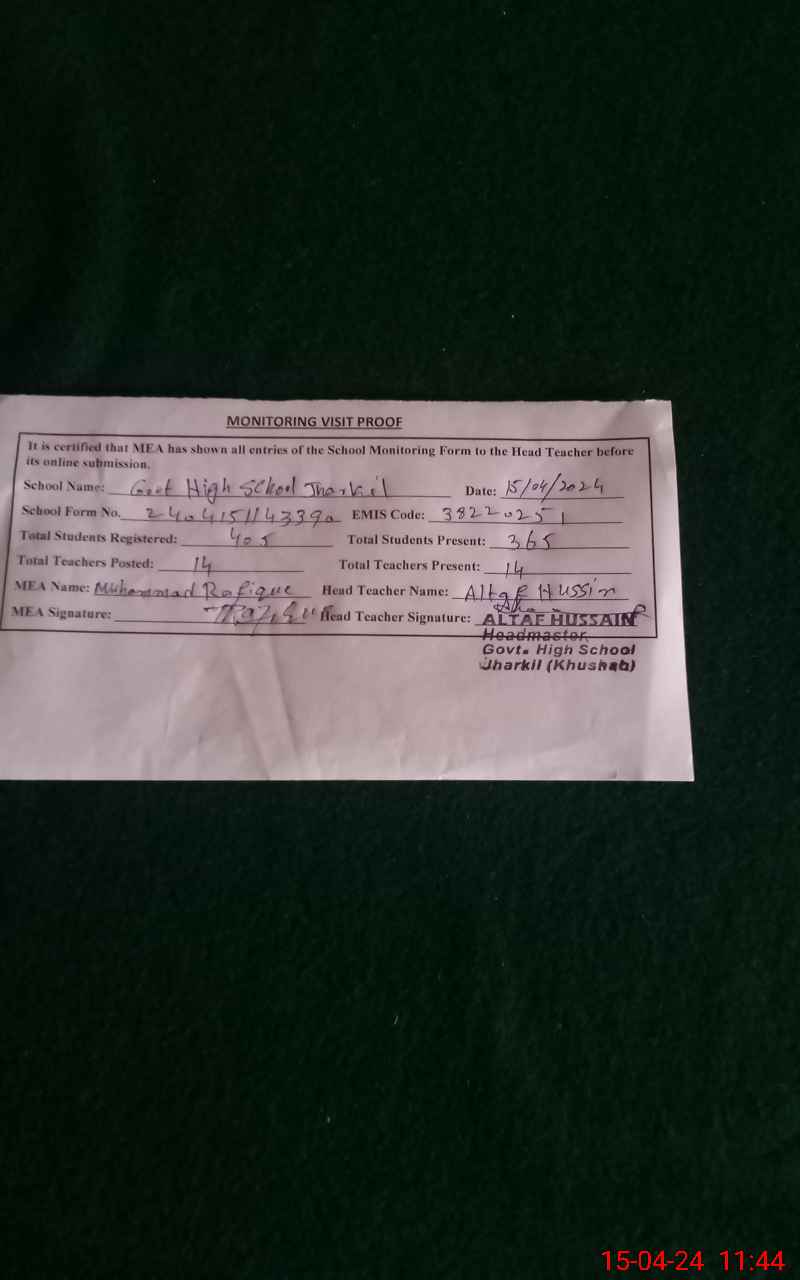 MONITORING VISIT PROOF
It is certified that MEA has shown all entries of the School Monitoring Form to the Head Teacher before
its online submission.
School Name: Govt High School Jharkil Date: 15/04/2024
School Form No. 2404151143390 EMIS Code: 38220251
Total Students Registered: 405 Total Students Present: 365
Total Teachers Posted: 14 Total Teachers Present: 14
MEA Name: Muhammad Rafique Head Teacher Name: Altaf Hussin
MEA Signature: Rafique Head Teacher Signature:
ALTAF HUSSAIN
Headmaster
Govt. High School
Jharkil (Khushab)
15-04-24 11:44